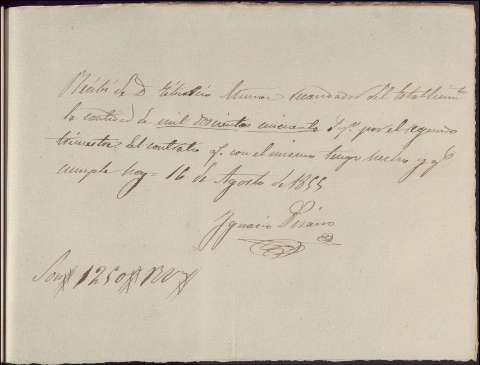 Recibí de D. Munoz recaudador del establecimto
la cantidad de mil doscientos cincuenta por el segundo
trimestre del contrato q. con el mismo tengo hecho y qe
cumple hoy 16 de Agosto de 1855
Ignacio
Son 1250 RV